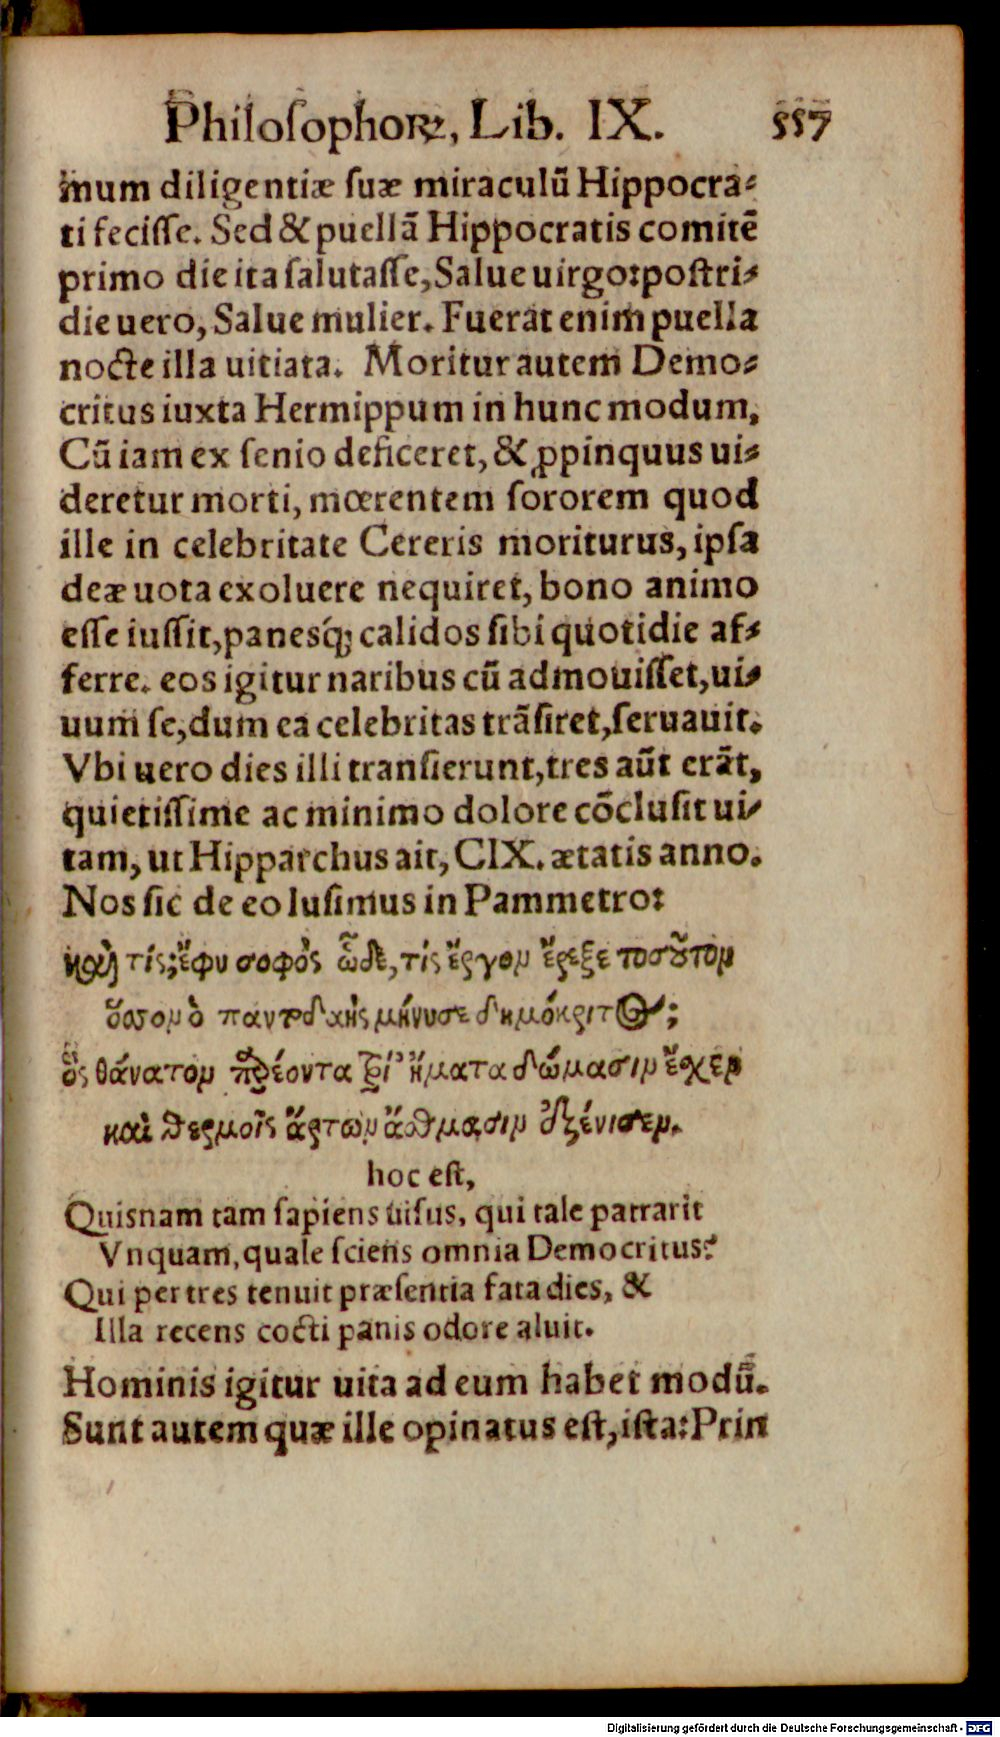 Philosophoꝝ, Lib. IX. 557
mum diligentiæ suæ miraculũ Hippocra-
ti fecisse. Sed & puellã Hippocratis comitẽ
primo die ita salutasse, Salue uirgo: postri-
die uero, Salue mulier. Fuerat enim puella
nocte illa uitiata. Moritur autem Demo-
critus iuxta Hermippum in hunc modum,
Cũ iam ex senio deficeret, & ꝓpinquus ui-
deretur morti, mœrentem sororem quod
ille in celebritate Cereris moriturus, ipsa
deæ uota exoluere nequiret, bono animo
esse iussit, panesq́; calidos sibi quotidie af-
ferre. eos igitur naribus cũ admouisset, ui-
uum se, dum ea celebritas trãsiret, seruauit.
Vbi uero dies illi transierunt, tres aũt erãt,
quietissime ac minimo dolore cõclusit ui-
tam, ut Hipparchus ait, CIX. ætatis anno.
Nos sic de eo lusimus in Pammetro:
καὶ τίς; ἔφυ σοφὸς ὧδε, τίς ἔργον ἔρεξε τοσοῦτον
ὅσσον ὁ παντοδαὴς μήνυσε δημόκριτος;
ὃς θάνατον παρέοντα τρί' ἤματα δώμασιν ἔσχεν
καὶ θερμοῖς ἄρτων ἄσθμασιν ἐξένισεν.
hoc est,
Quisnam tam sapiens uisus, qui tale patrarit
Vnquam, quale sciens omnia Democritus?
Qui per tres tenuit præsentia fata dies, &
Illa recens cocti panis odore aluit.
Hominis igitur uita ad eum habet modũ.
Sunt autem quæ ille opinatus est, ista: Prin
Digitalisierung gefördert durch die Deutsche Forschungsgemeinschaft - DFG